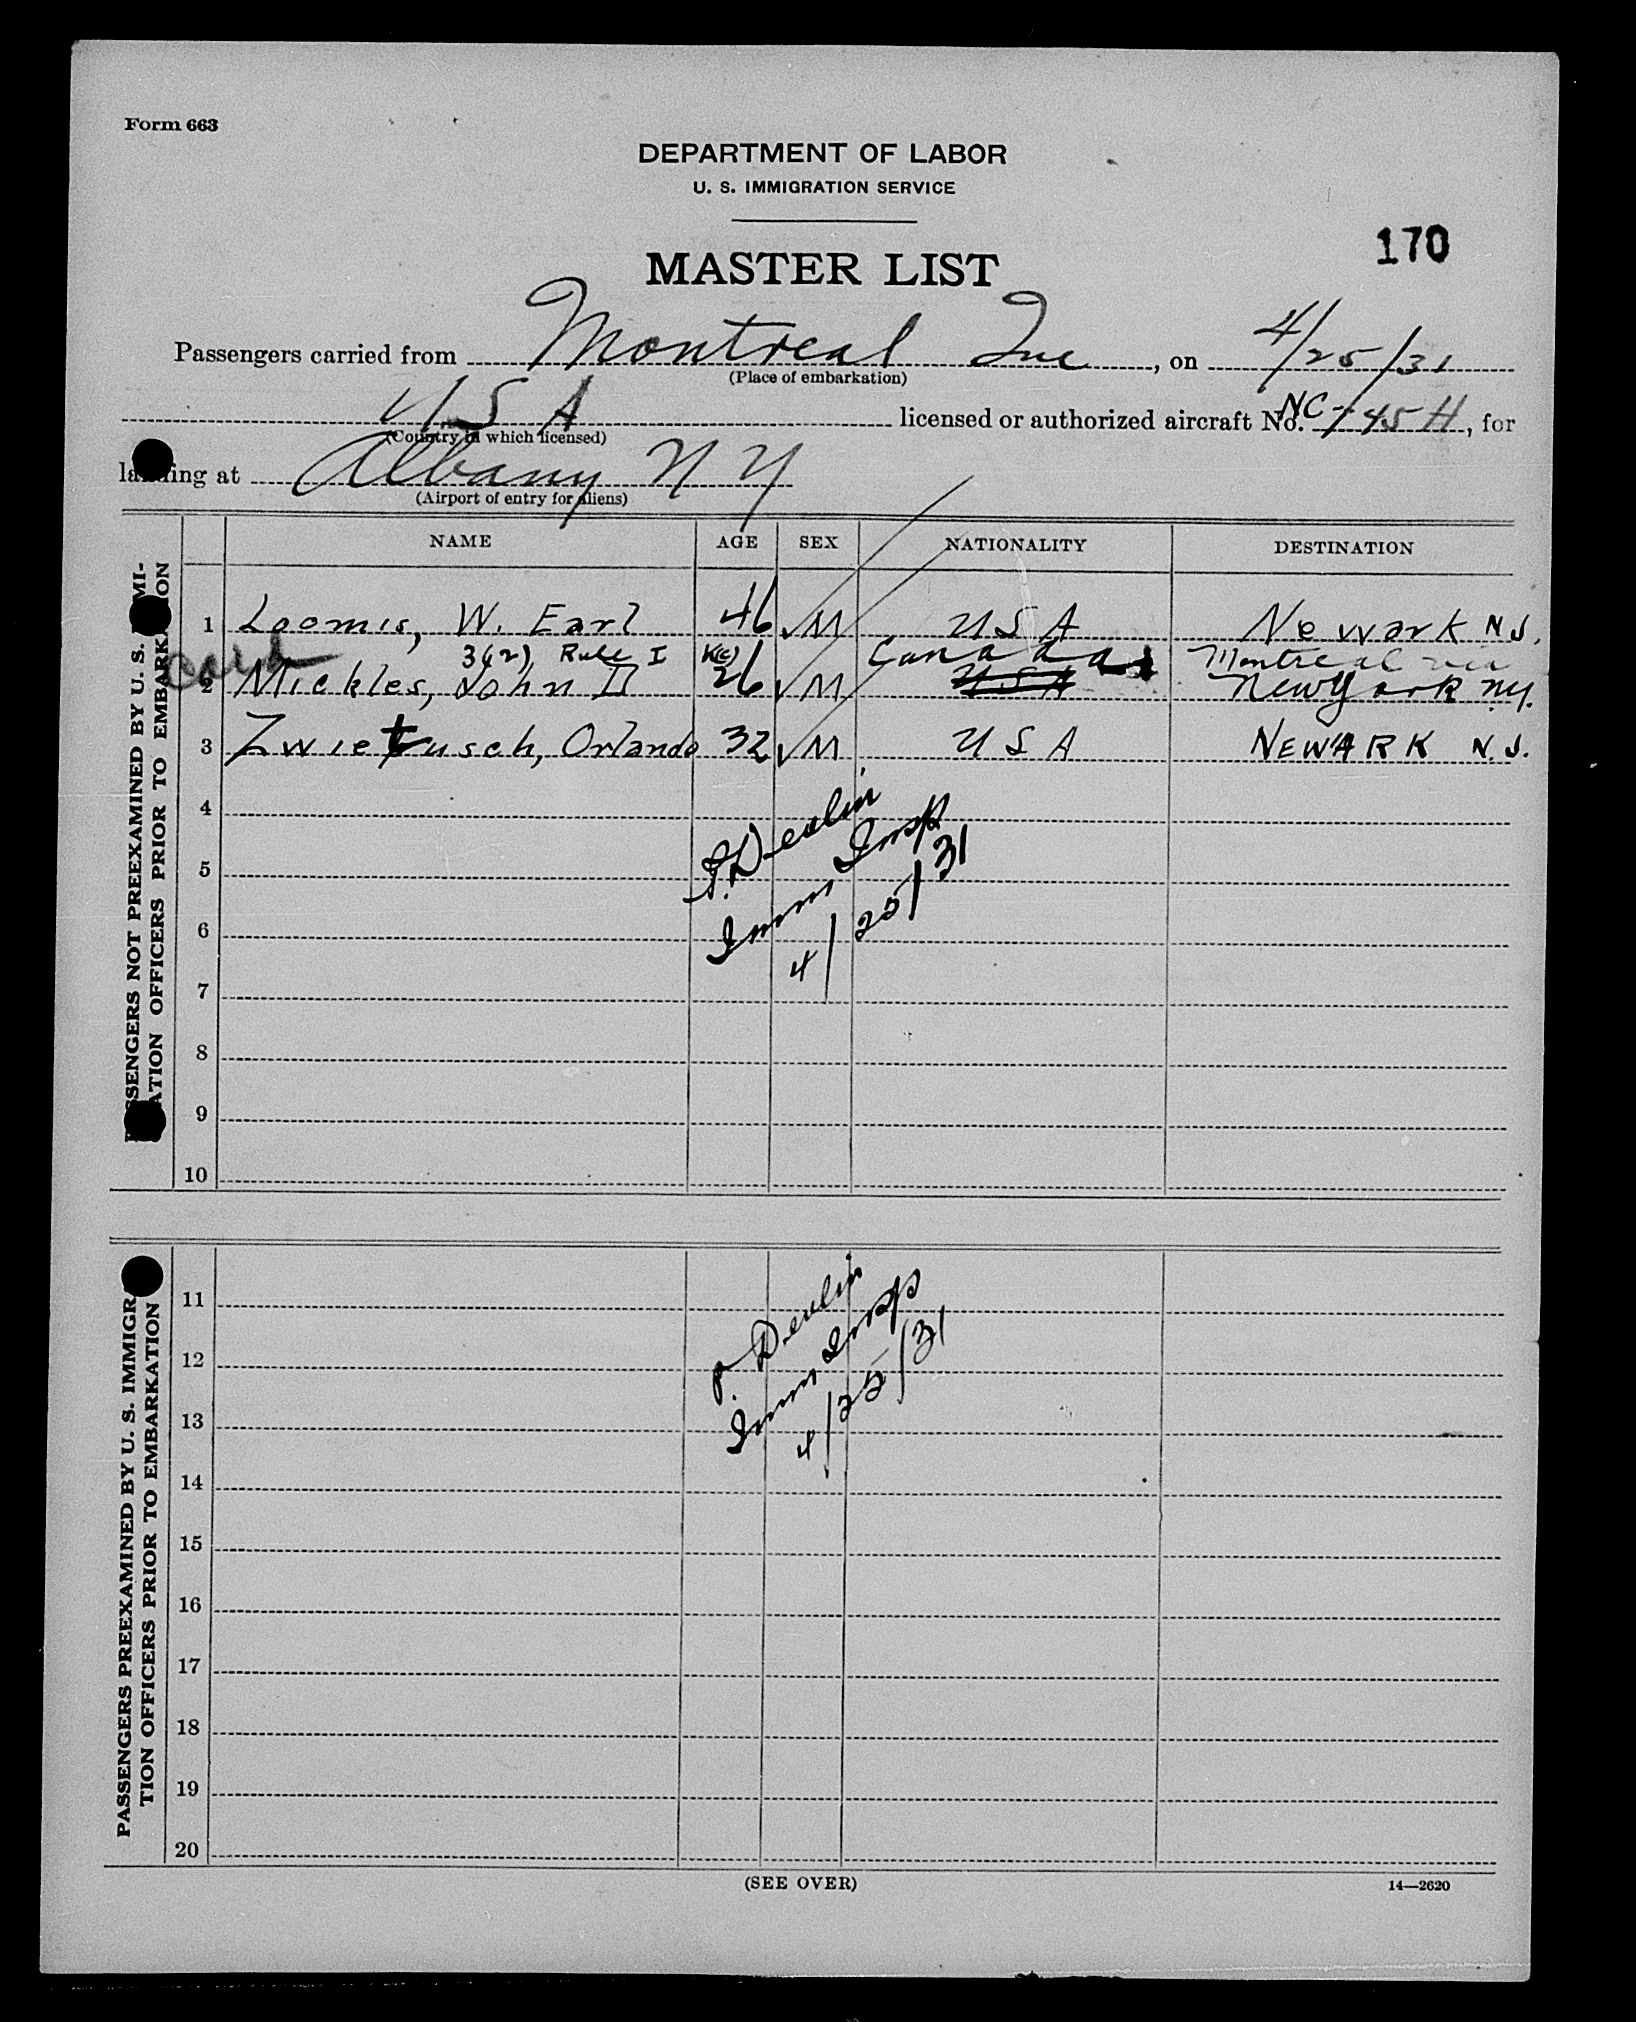 Form 663
DEPARTMENT OF LABOR
U. S. IMMIGRATION SERVICE
170
MASTER LIST
Passengers carried from Montreal Que, on 4/25/31
(Place of embarkation)
U S A licensed or authorized aircraft No. NC-145H, for
(Country in which licensed)
landing at Albany N Y
(Airport of entry for aliens)
NAME AGE SEX NATIONALITY DESTINATION
PASSENGERS NOT PREEXAMINED BY U. S. IMMI-
GRATION OFFICERS PRIOR TO EMBARKATION
1 Loomis, W. Earl 46 ✓ M U S A Newark N J.
Card 3(2) Rule I Canada Montreal via
2 Mickles, John D 26 ✓ M U S A New York NY.
3 Zwietusch, Orlando 32 ✓ M U S A NEWARK N. J.
4
P. Devlin
5
Imm Insp
6
4/25/31
7
8
9
10
PASSENGERS PREEXAMINED BY U. S. IMMIGRA-
TION OFFICERS PRIOR TO EMBARKATION
11
P. Devlin
12
Imm Insp
13
4/25/31
14
15
16
17
18
19
20
(SEE OVER)
14—2620